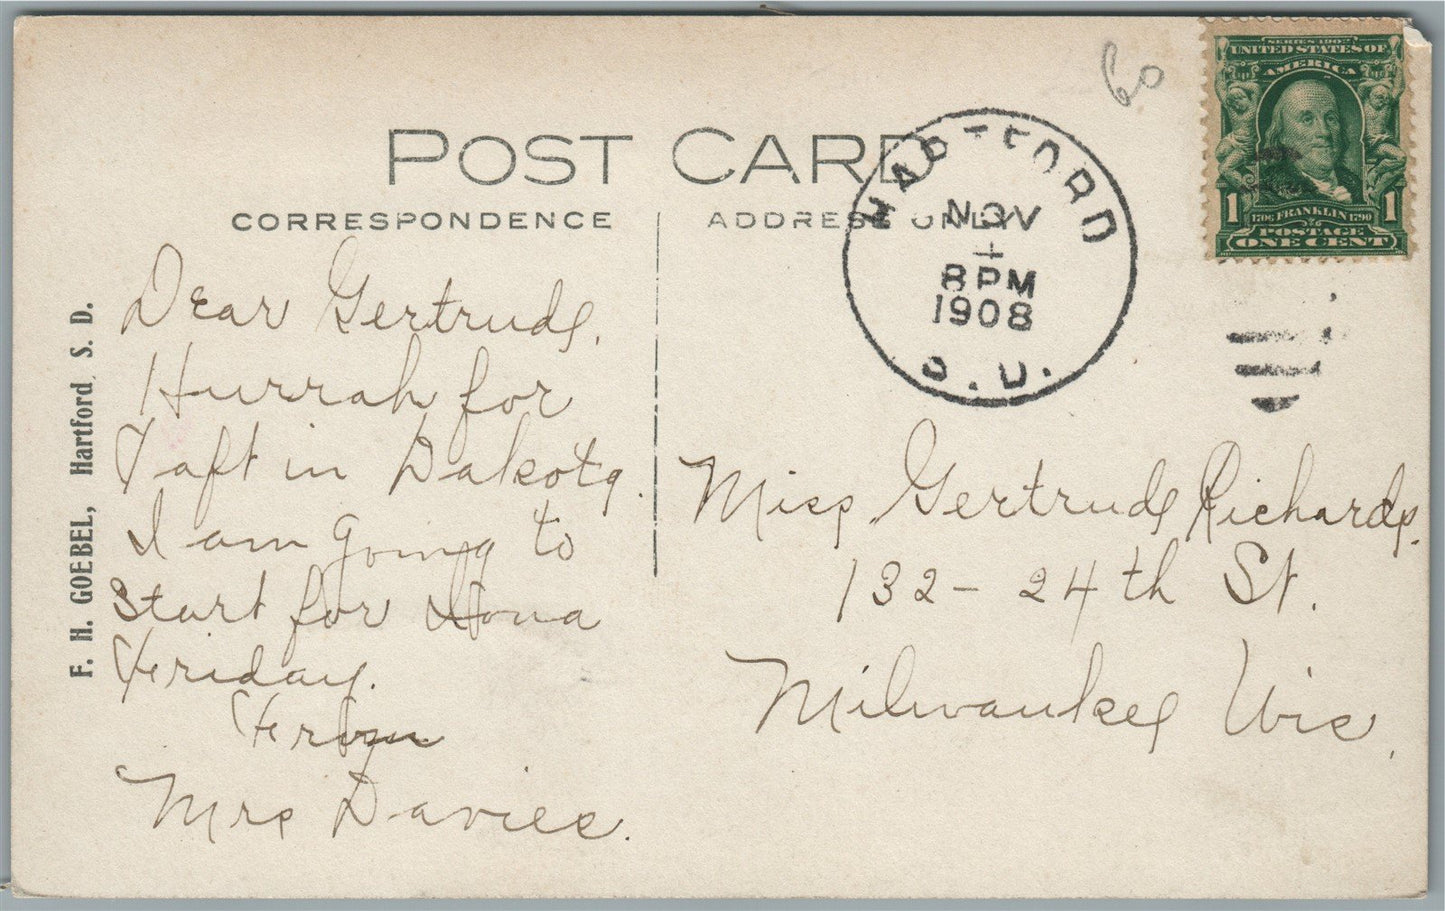 POST CARD
CORRESPONDENCE
ADDRESS ONLY
F. H. GOEBEL, Hartford, S. D.
Dear Gertrude,
Hurrah for
Taft in Dakota.
I am going to
start for Iowa
Friday.
From
Mrs Davies.
60
HARTFORD
NOV
8 PM
1908
S.D.
SERIES 1902
UNITED STATES OF
AMERICA
1706 FRANKLIN 1790
1 POSTAGE 1
ONE CENT
Miss Gertrude Richards.
132 - 24th St.
Milwaukee Wis.